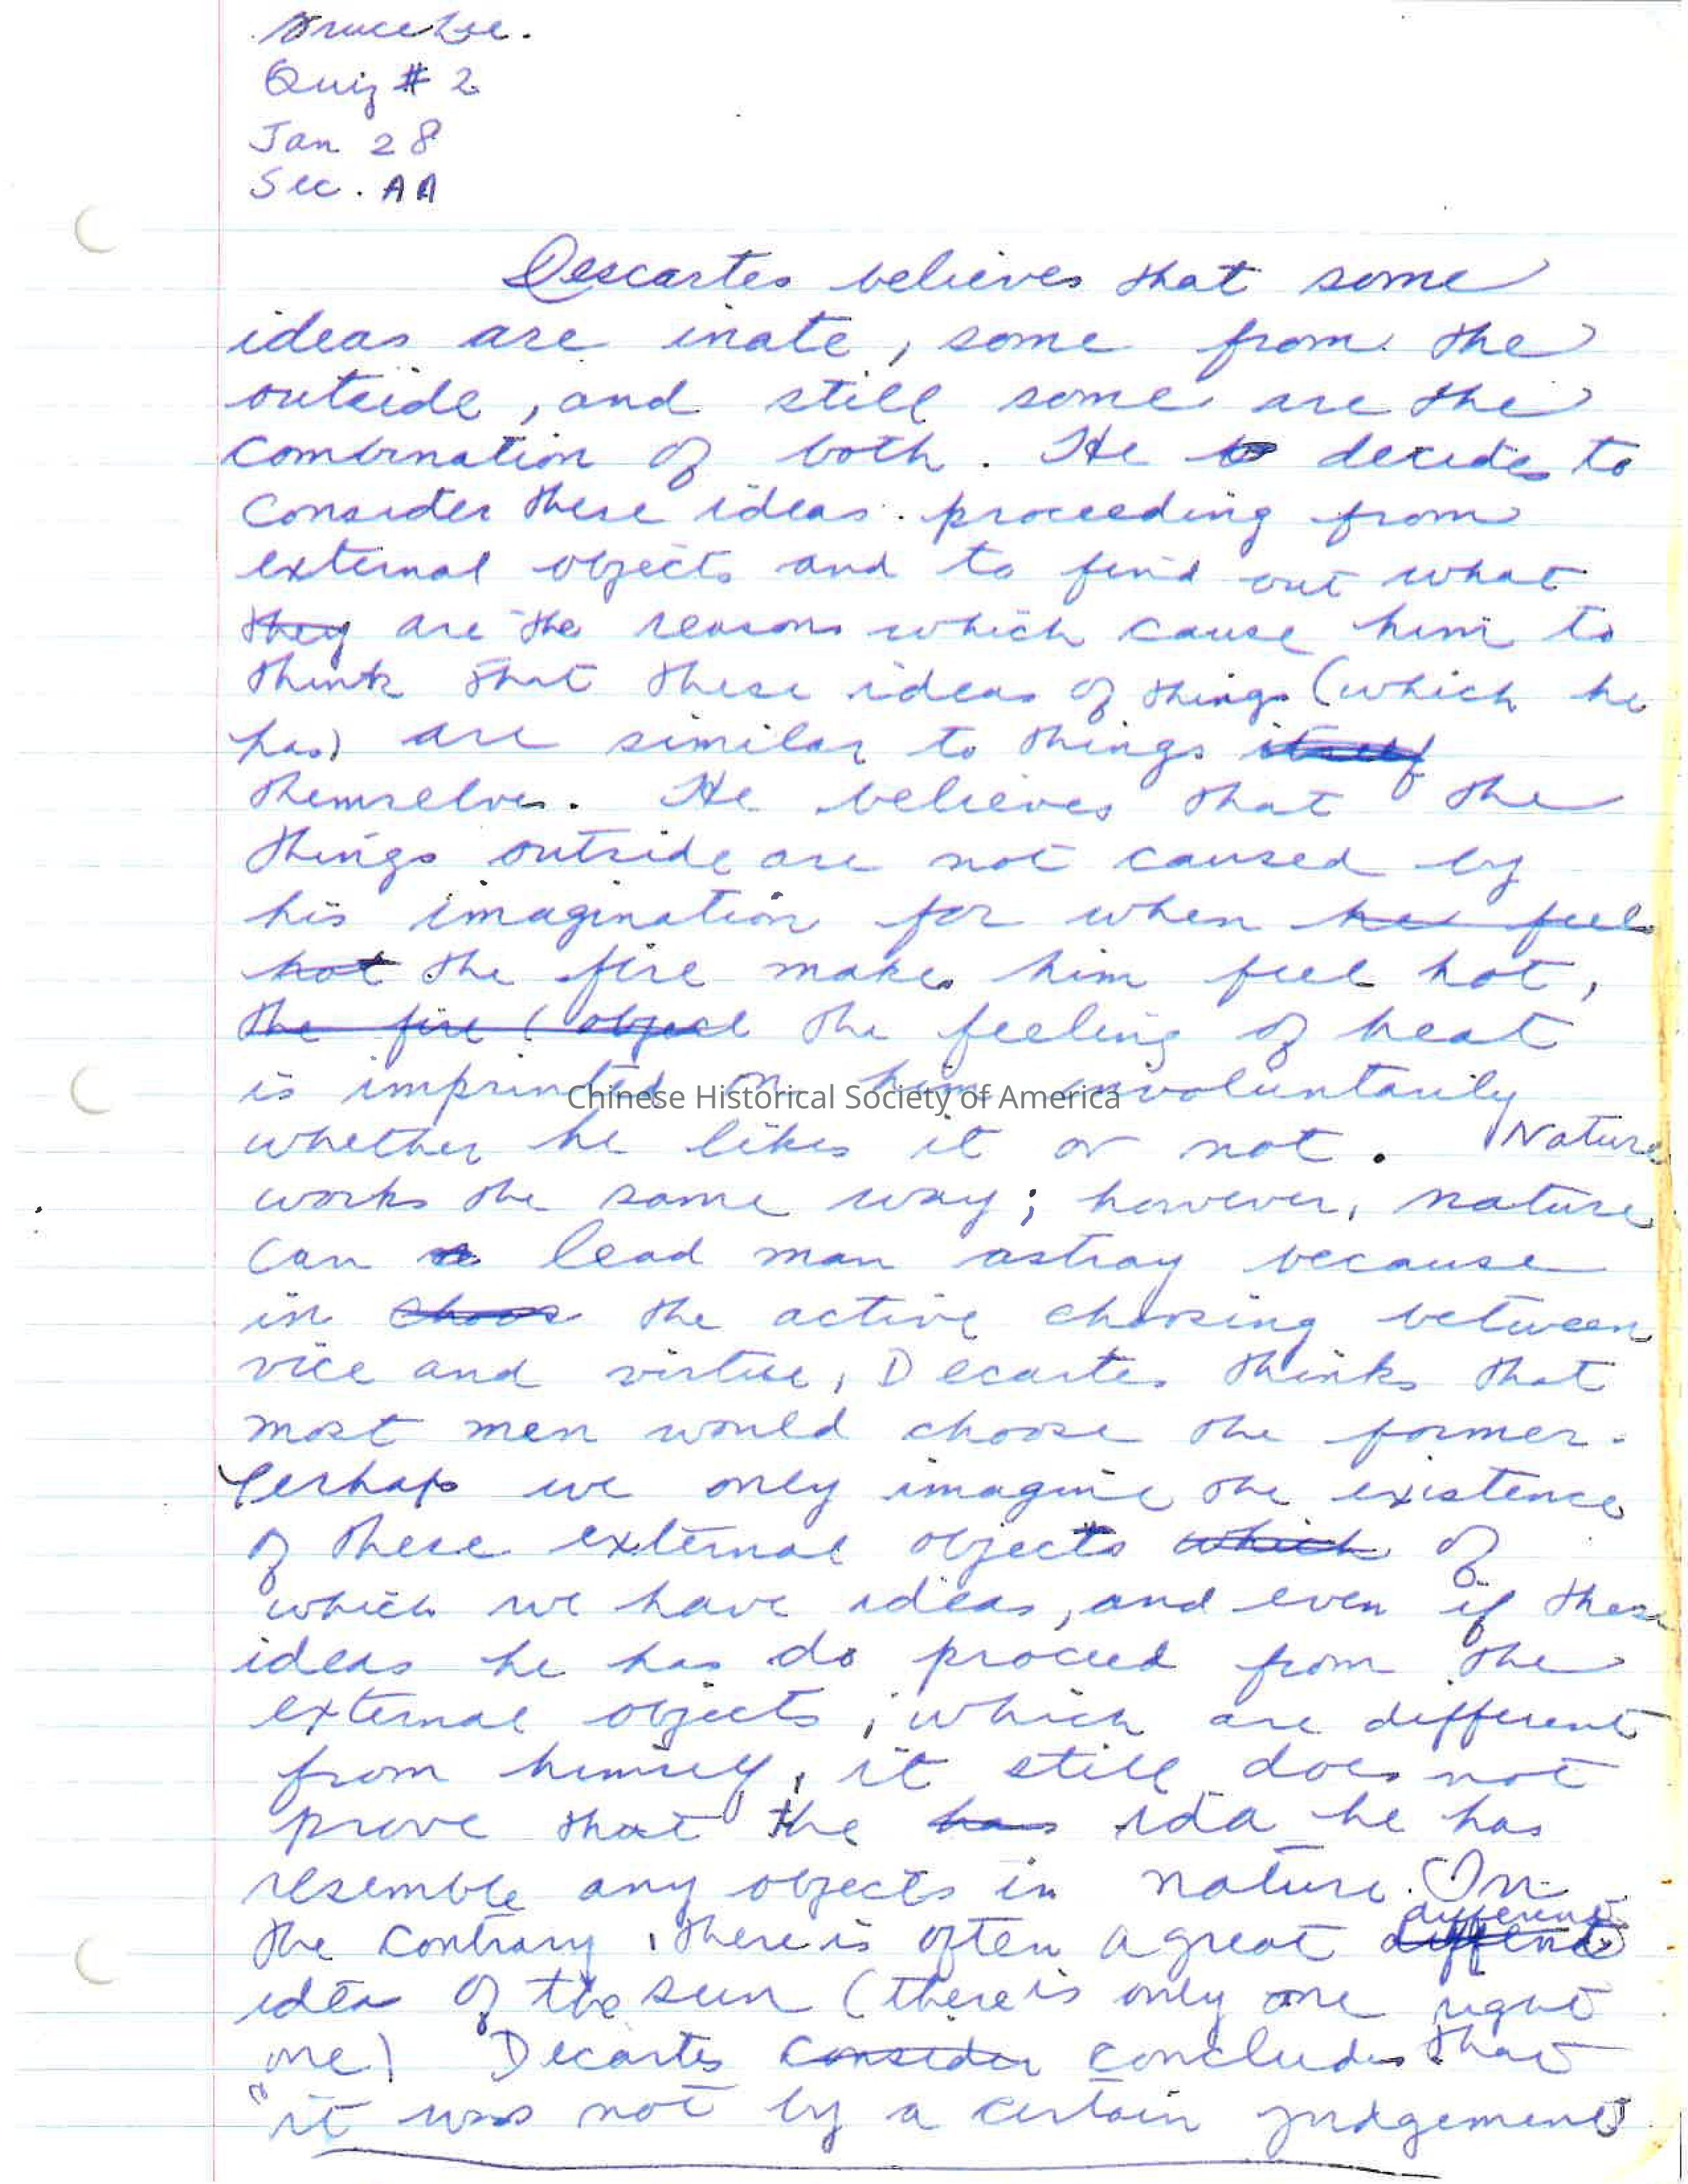 Bruce Lee.
Quiz # 2
Jan 28
Sec. AA
Descartes believes that some
ideas are inate, some from the
outside, and still some are the
combination of both. He to decides to
consider these ideas proceeding from
external objects and to find out what
they are the reasons which cause him to
think that these ideas of things (which he
has) are similar to things itself
themselves. He believes that the
things outside are not caused by
his imagination for when he feel
hot the fire makes him feel hot,
the fire (object the feeling of heat
is imprinted on him involuntarily
Chinese Historical Society of America
whether he likes it or not. Nature
works the same way; however, nature
can lead man astray because
in choos the active choosing between
vice and virtue, Decartes thinks that
most men would choose the former.
Perhaps we only imagine the existence
of these external objects which of
which we have ideas, and even if these
ideas he has do proceed from the
external objects, which are different
from himself, it still does not
prove that the has ida he has
resemble any objects in nature. On
the contrary, there is often a great
different
idea of the sun (there is only one right
one) Decartes consider concludes that
"it was not by a certain judgement